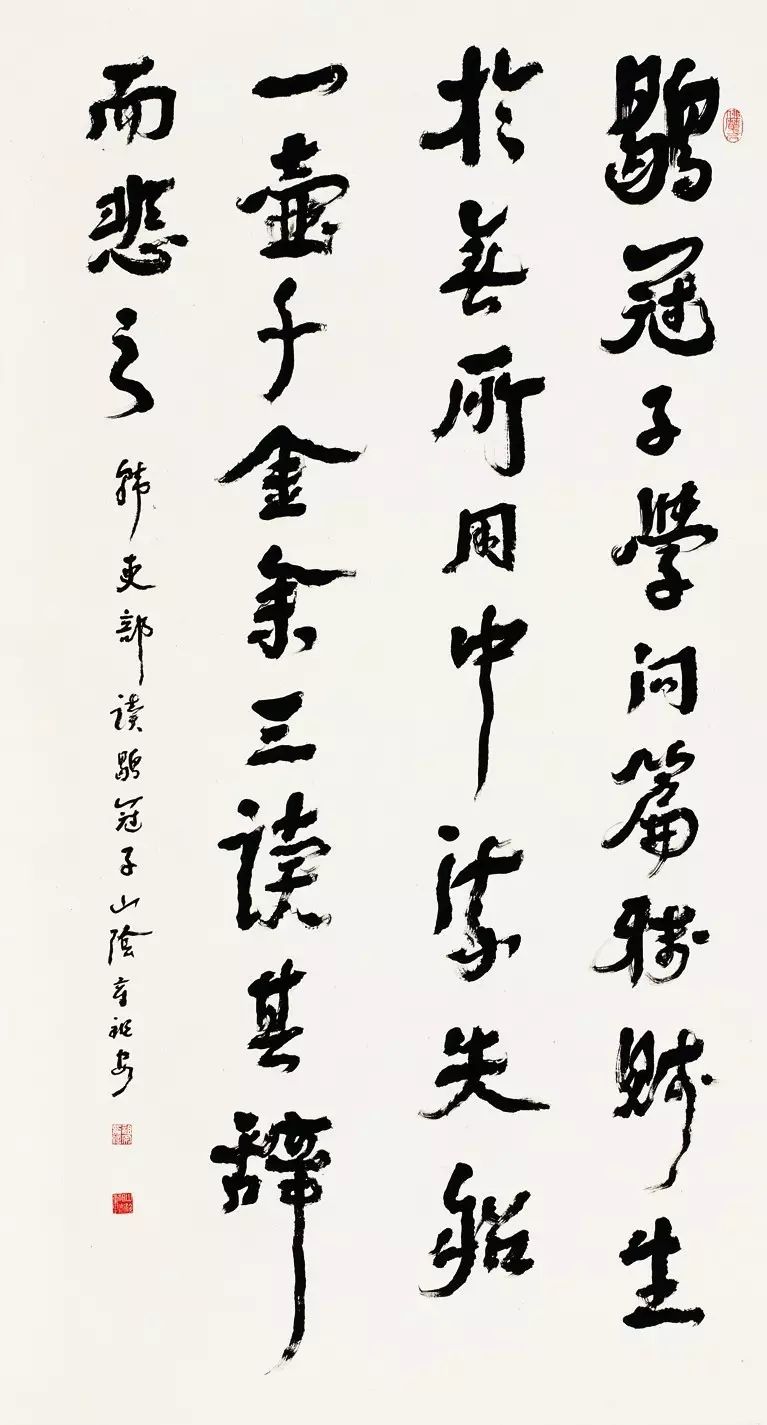 鶡冠子學問篇賤生
於無所用中流失船
一壺千金余三讀其辭
而悲之
韓吏部讀鶡冠子山陰章祖安